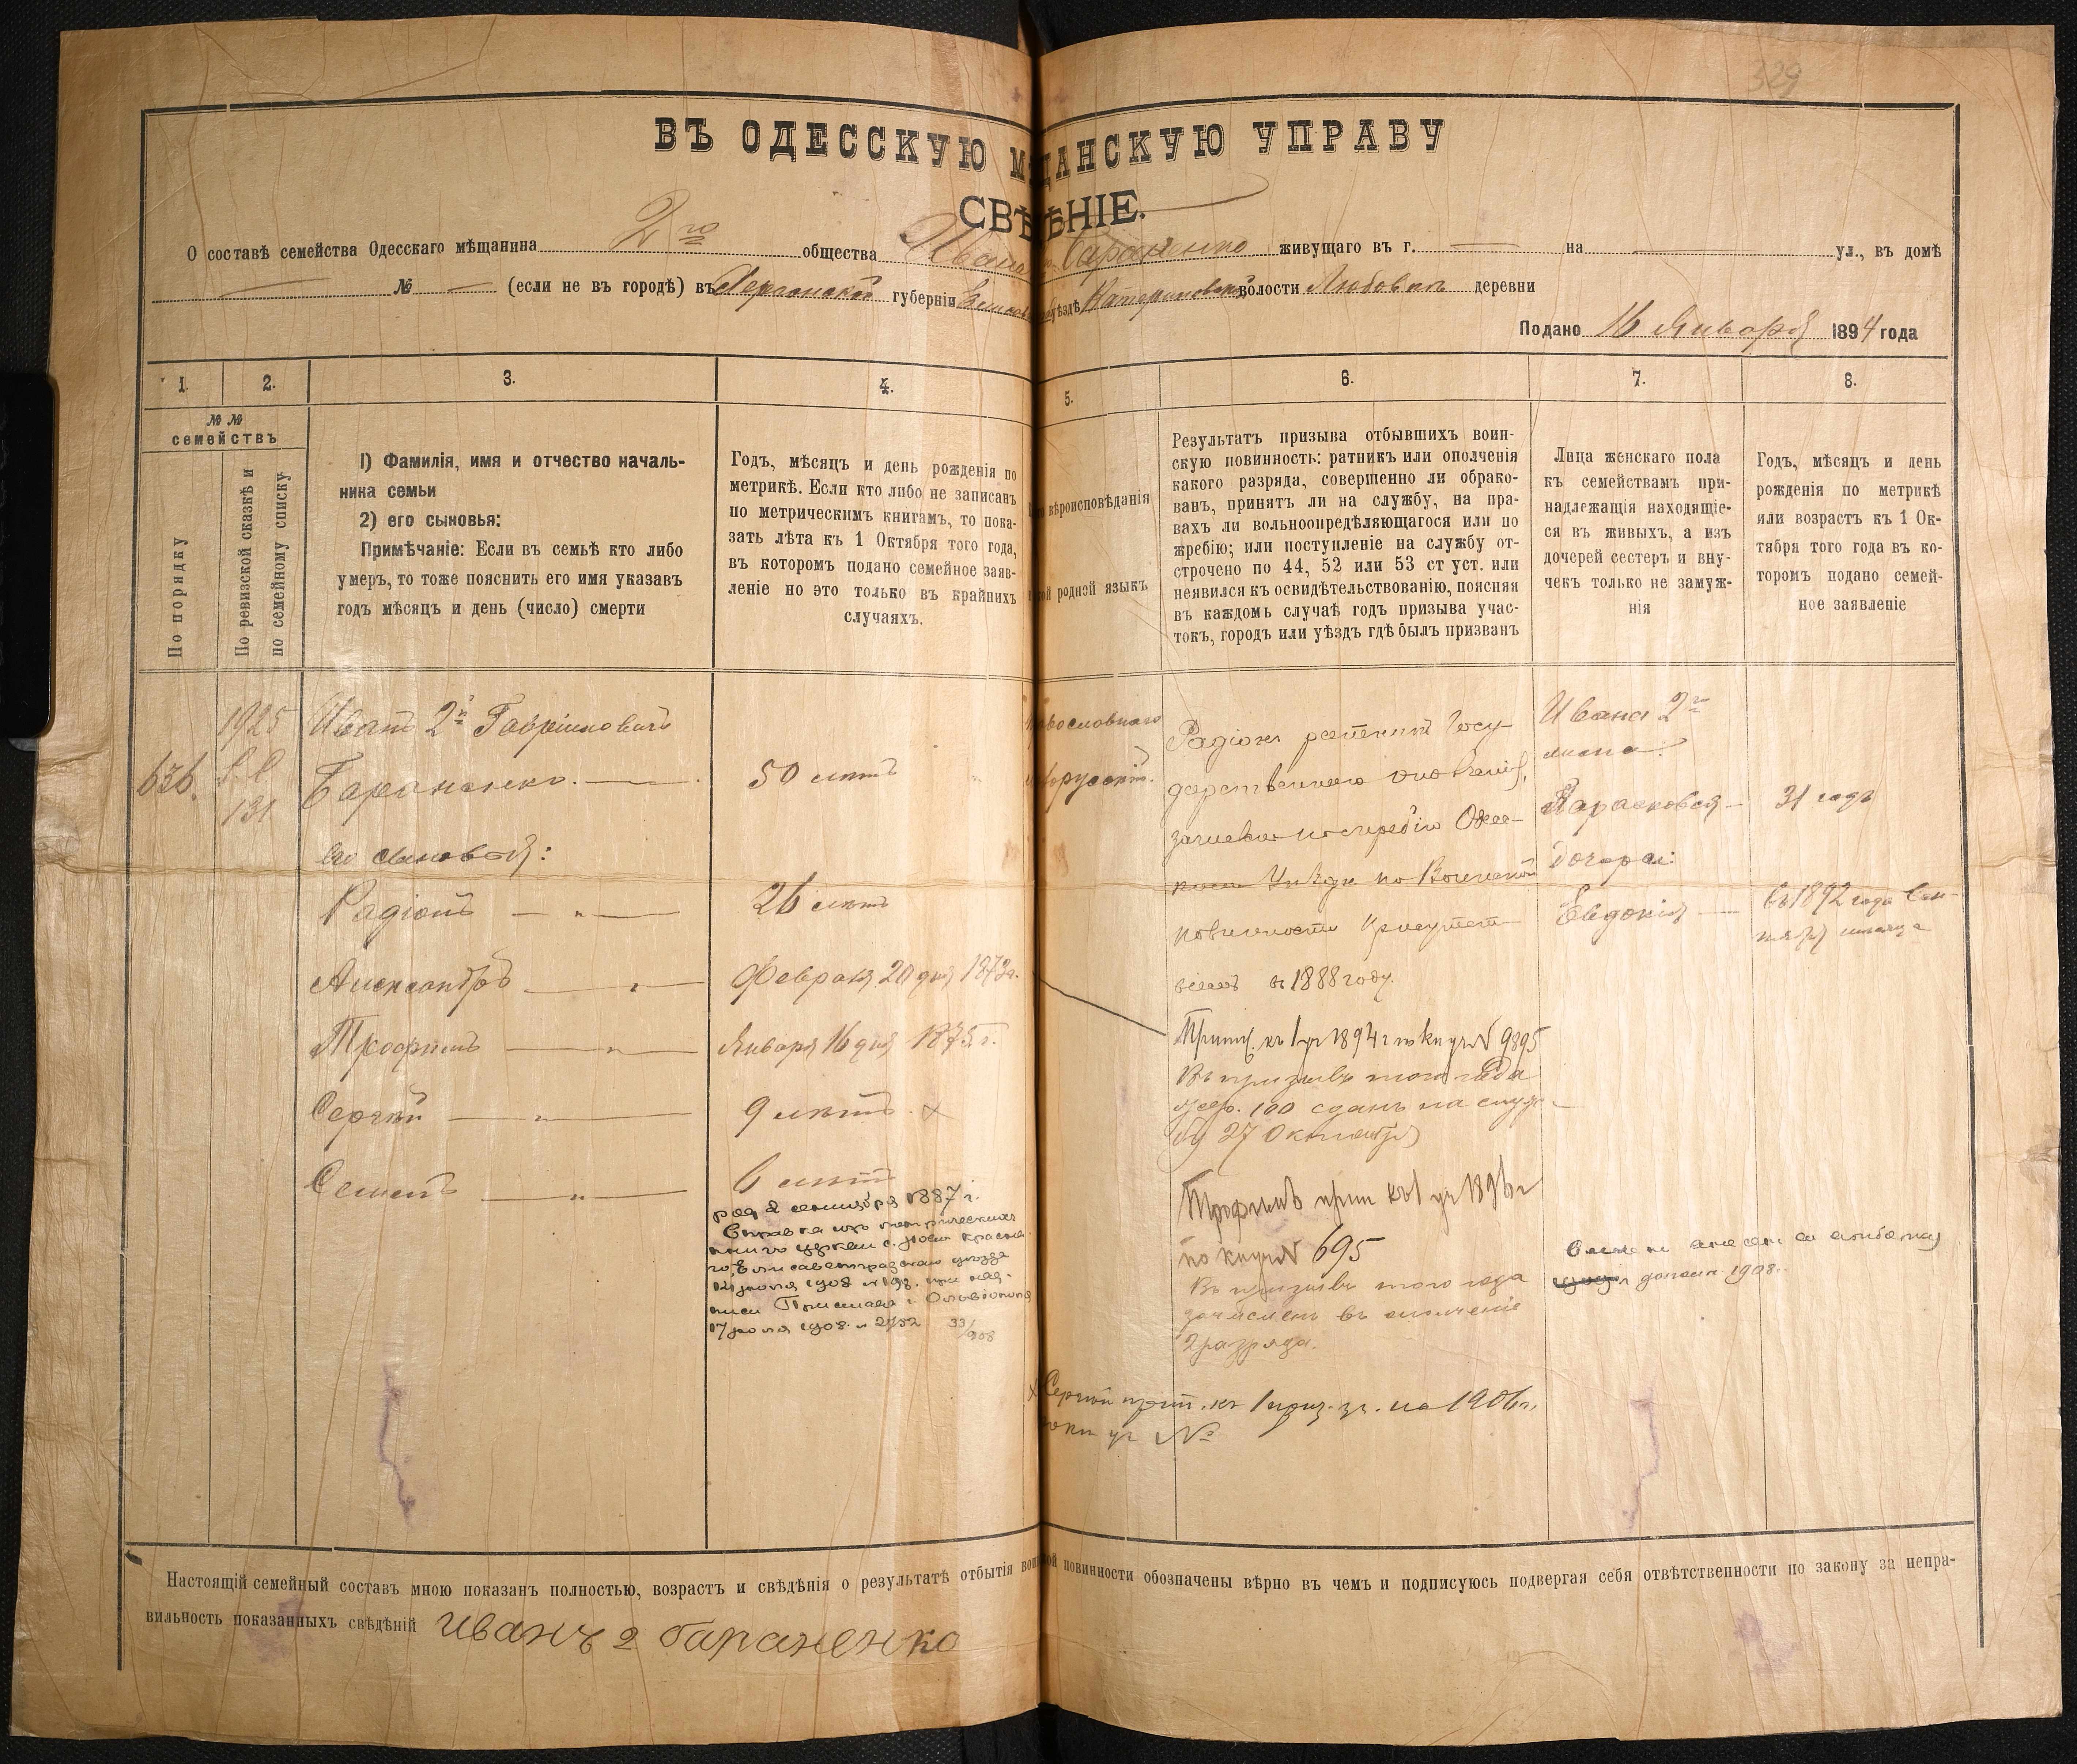 329
ВЪ ОДЕССКУЮ М ЩАНСКУЮ УПРАВУ
СВѢ ѢНІЕ.
О составѣ семейства Одесскаго мѣщанина 2го общества Ивана Бараненко живущаго въ г. — на — ул., въ домѣ
— № — (если не въ городѣ) въ Херсонской губерніи уѣздѣ волости деревни
Подано 16 Января 1894 года
1. 2. 3. 4. 5. 6. 7. 8.
№ №
семействъ
По порядку
По ревизской сказкѣ и
по семейному списку
1) Фамилія, имя и отчество началь-
ника семьи
2) его сыновья:
Примѣчаніе: Если въ семьѣ кто либо
умеръ, то тоже пояснить его имя указавъ
годъ мѣсяцъ и день (число) смерти
Годъ, мѣсяцъ и день рожденія по
метрикѣ. Если кто либо не записанъ
по метрическимъ книгамъ, то пока-
зать лѣта къ 1 Октября того года,
въ которомъ подано семейное заяв-
леніе но это только въ крайнихъ
случаяхъ.
вѣроисповѣданія
родной языкъ
Результатъ призыва отбывшихъ воин-
скую повинность: ратникъ или ополченія
какого разряда, совершенно ли обрако-
ванъ, принятъ ли на службу, на пра-
вахъ ли вольноопредѣляющагося или по
жребію; или поступленіе на службу от-
строчено по 44, 52 или 53 ст уст. или
неявился къ освидѣтельствованію, поясняя
въ каждомъ случаѣ годъ призыва учас-
токъ, городъ или уѣздъ гдѣ былъ призванъ
Лица женскаго пола
къ семействамъ при-
надлежащія находящіе-
ся въ живыхъ, а изъ
дочерей сестеръ и вну-
чекъ только не замуж-
нія
Годъ, мѣсяцъ и день
рожденія по метрикѣ
или возрастъ къ 1 Ок-
тября того года въ ко-
торомъ подано семей-
ное заявленіе
636.
1925
131
Иванъ 2й Гавриловичъ
Бараненко. —
50 лѣтъ
его сыновья:
Радіонъ — „ —
26 лѣтъ
Александръ — „ —
Февраля 20 дня 1873г.
Трофимъ — „ —
Января 16 дня 1875 г.
Сергѣй — „ —
9 лѣтъ ×
Семенъ — „ —
6 лѣтъ
род 2 сентября 1887 г.
Справка изъ метрическихъ
книгъ церкви с.
Елисаветградскаго уѣзда
17 іюля 1908 № 2752 33/908
православнаго
Радіонъ ратникъ Госу-
дарственнаго ополченія,
зачисленъ
Уѣзда по Воинской
повинности Присутст-
віемъ въ 1888 году.
Прип. къ 1 уч 1894 г по кн уч № 9895
Въ призывъ того года
жер. 100 сданъ на служ-
бу 27 Октября
Трофимъ прип къ 1 уч 1896 г
по кн уч № 695
Въ призывъ того года
зачисленъ въ ополченіе
2 разряда.
× Сергѣй прип. къ 1 приз. уч. на 1906 г.
по кн уч №
Ивана 2го
жена:
Парасковья —
31 годъ
дочери:
Евдокія —
Въ 1892 года Сен-
тября мѣсяца
1908
Настоящій семейный составъ мною показанъ полностью, возрастъ и свѣдѣнія о результатѣ отбытія воинской повинности обозначены вѣрно въ чемъ и подписуюсь подвергая себя отвѣтственности по закону за непра-
вильность показанныхъ свѣдѣній Иванъ 2 бараненко